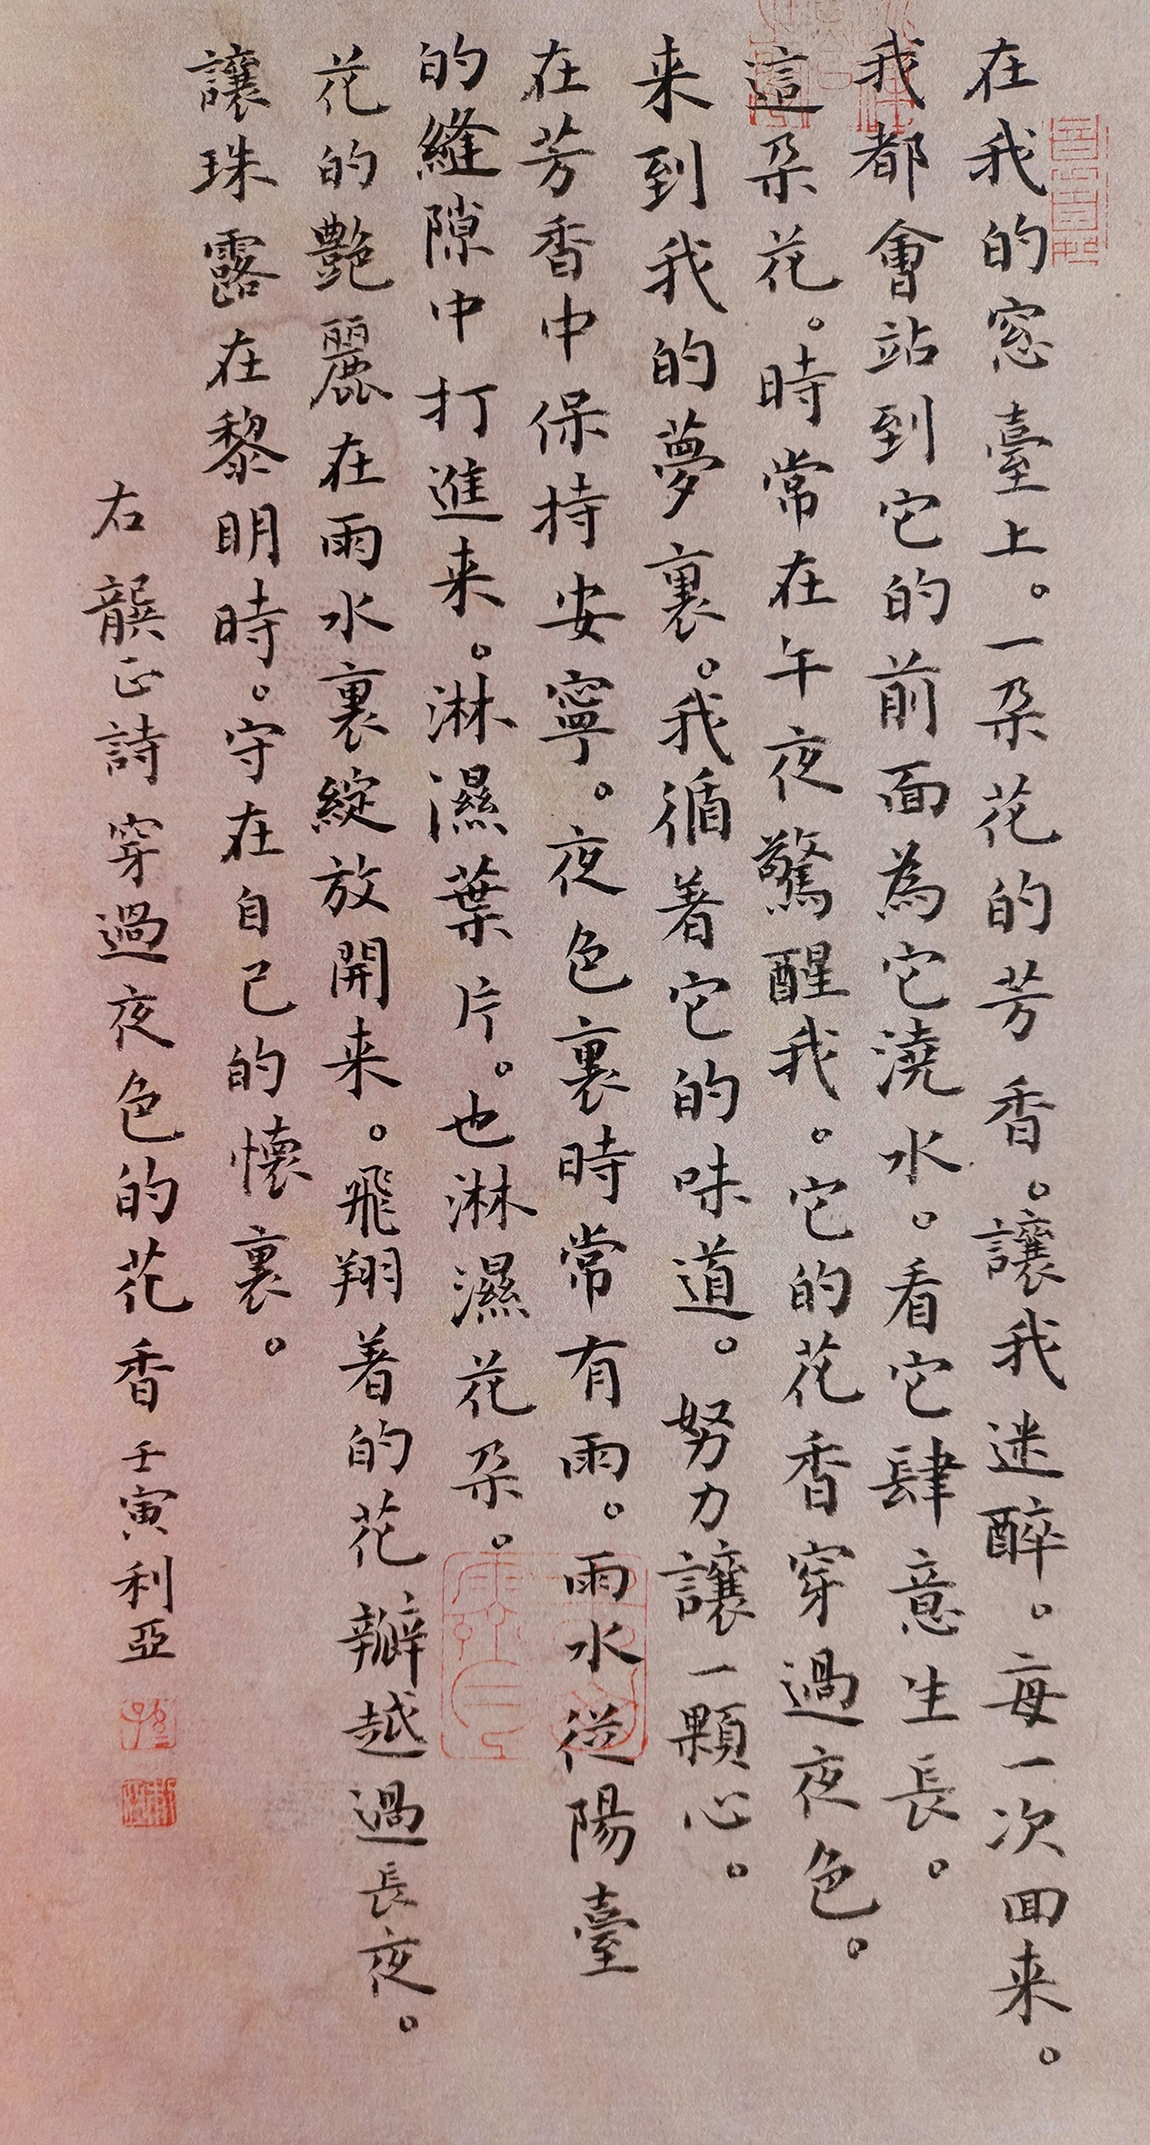 在我的窓臺上。一朵花的芳香。讓我迷醉。每一次回来。
我都會站到它的前面為它澆水。看它肆意生長。
這朵花。時常在午夜驚醒我。它的花香穿過夜色。
来到我的夢裏。我循着它的味道。努力讓一顆心。
在芳香中保持安寧。夜色裏時常有雨。雨水從陽臺
的縫隙中打進来。淋濕葉片。也淋濕花朵。
花的艷麗在雨水裏綻放開来。飛翔着的花瓣越過長夜。
讓珠露在黎明時。守在自己的懷裏。
右龔正詩穿過夜色的花香壬寅利亞